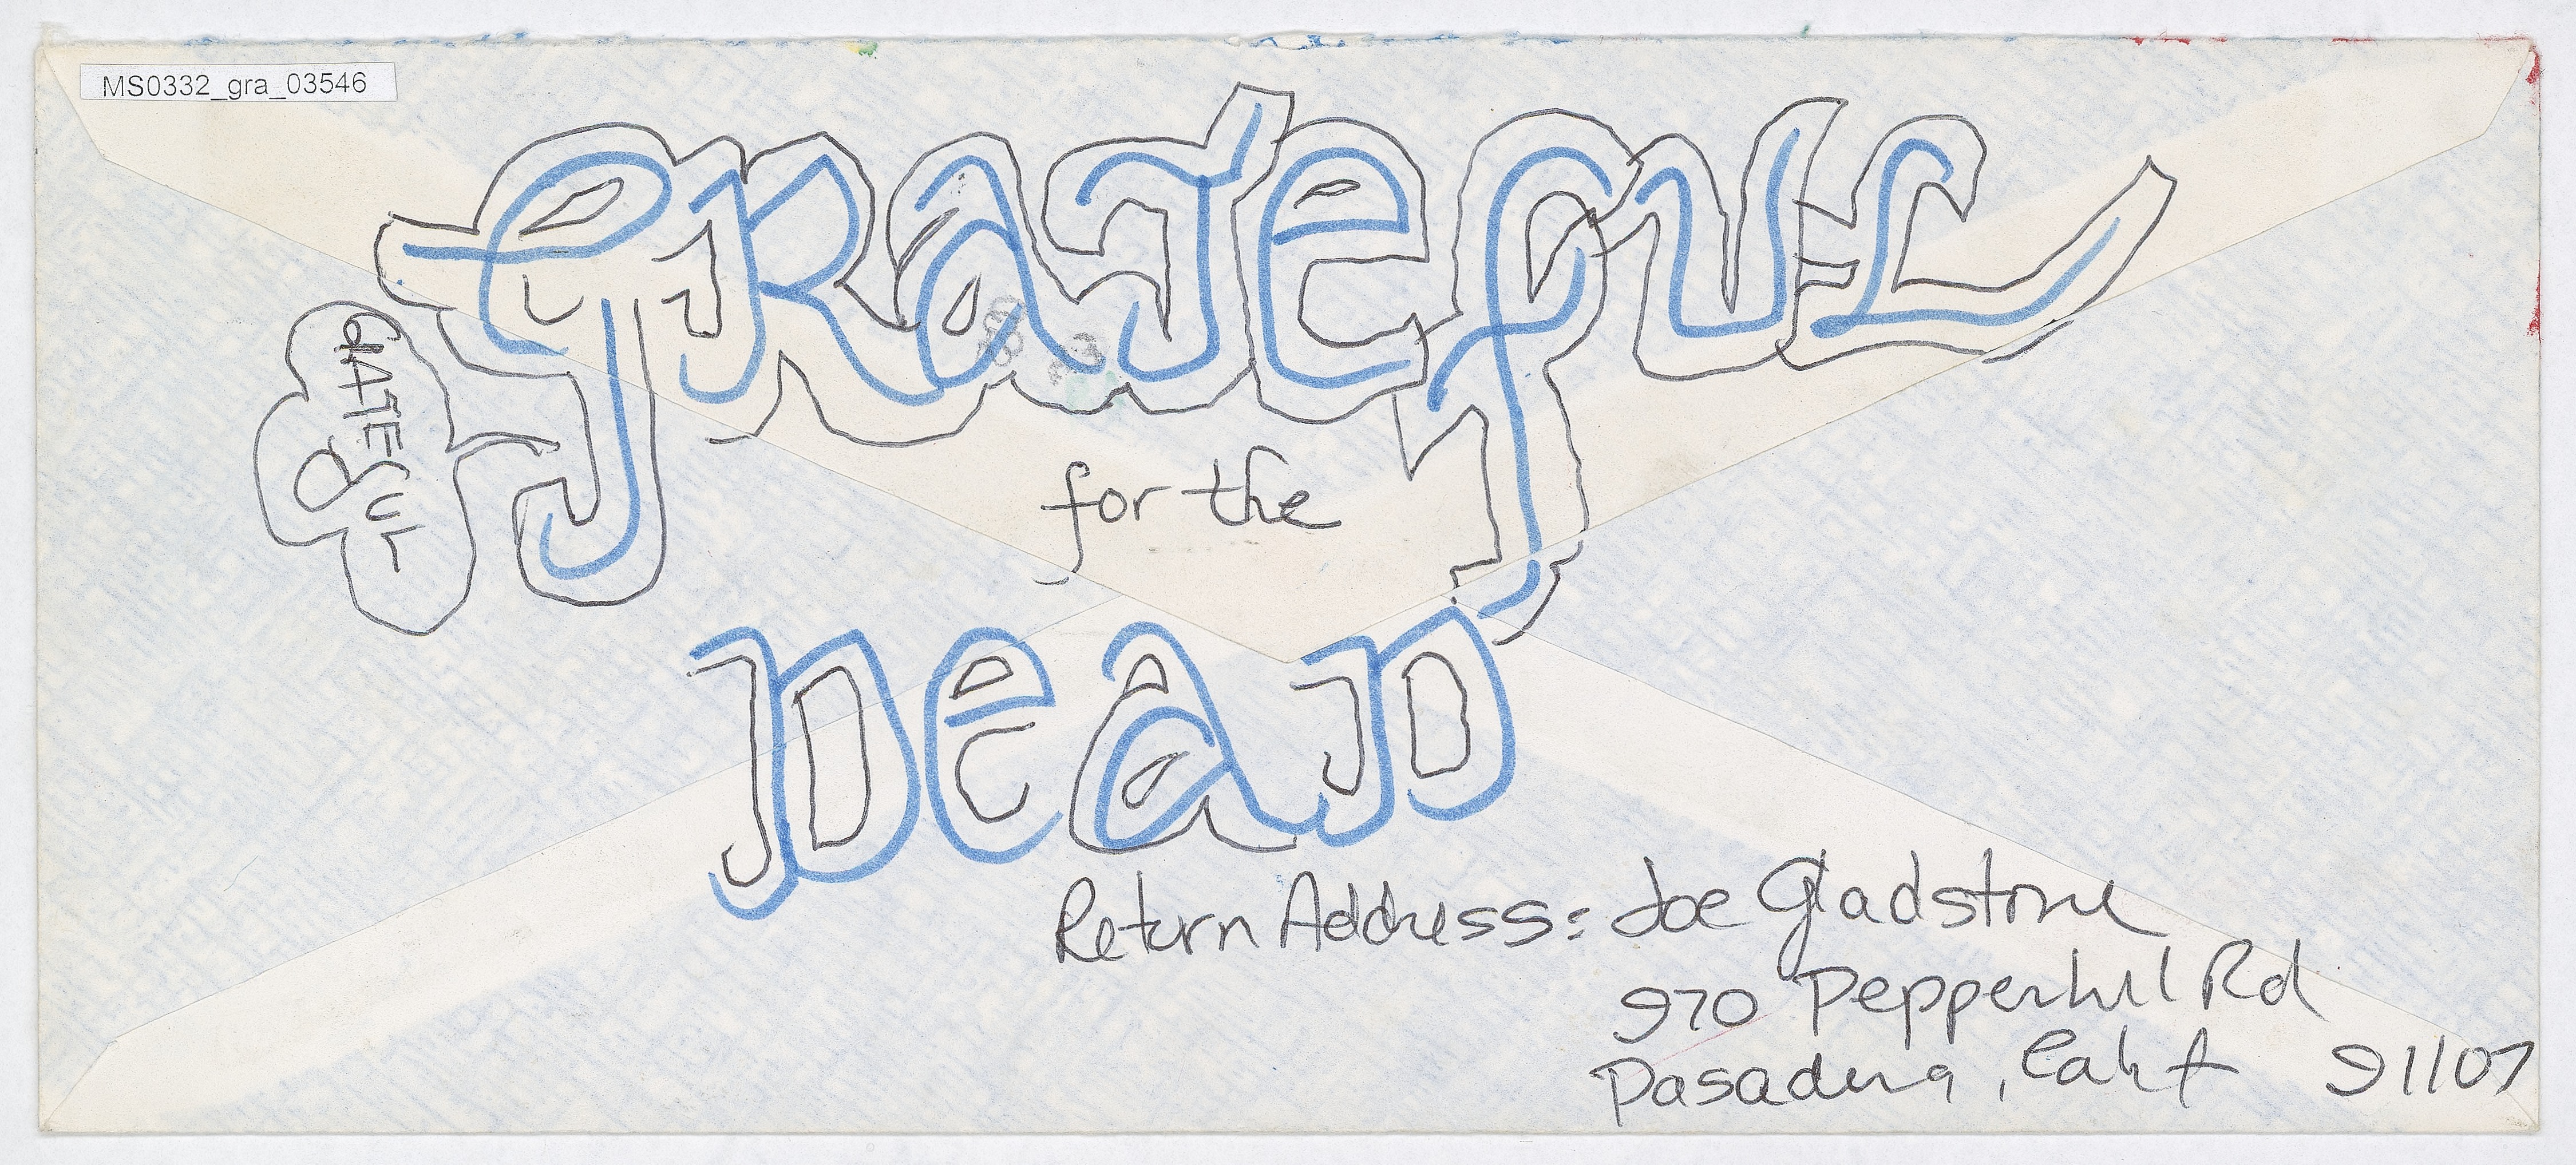 MS0332_gra_03546
GRATEFUL
GRATEFUL
for the
DEAD
Return Address: Joe Gladstone
970 Pepperhill Rd
Pasadena, Calif 91107